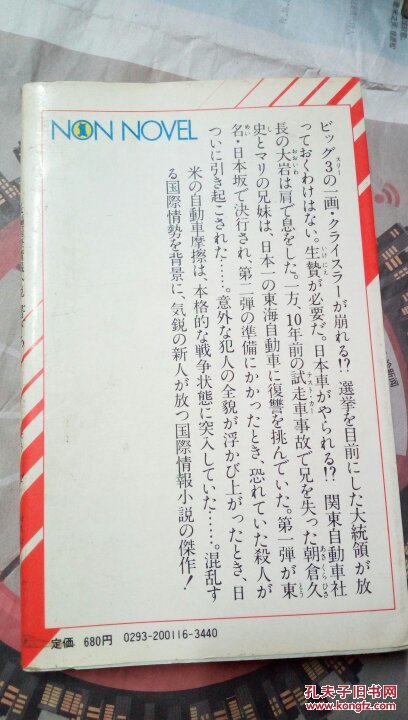 NON NOVEL
ビッグ3の一画・クライスラーが崩れる!? 選挙を目前にした大統領が放
っておくわけはない。生贄が必要だ。日本車がやられる!? 関東自動車社
長の大岩は肩で息をした。一方、10年前の試走車事故で兄を失った朝倉久
史とマリの兄妹は、日本一の東海自動車に復讐を挑んでいた。第一弾が東
名・日本坂で決行され、第二弾の準備にかかったとき、恐れていた殺人が
ついに引き起こされた……。意外な犯人の全貌が浮かび上がったとき、日
米の自動車摩擦は、本格的な戦争状態に突入していた……。混乱す
る国際情勢を背景に、気鋭の新人が放つ国際情報小説の傑作!
定価 680円 0293-200116-3440
孔夫子旧书网